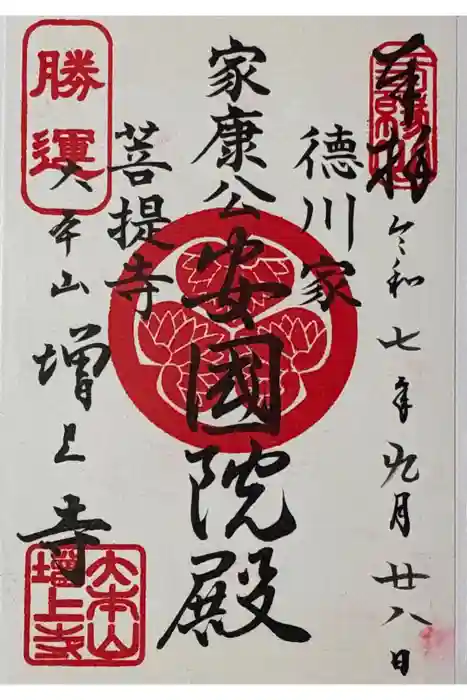 奉拝
令和七年九月廿八日
徳川家
家康公安國院殿
菩提寺
勝運
大本山増上寺
大本山
増上寺